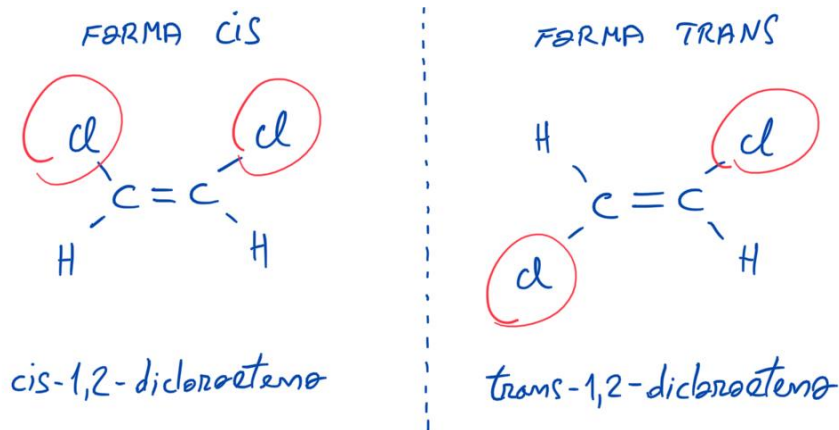 FORMA CIS
Cl Cl
C = C
H H
cis-1,2-dicloroetene
FORMA TRANS
H Cl
C = C
Cl H
trans-1,2-dicloroetene